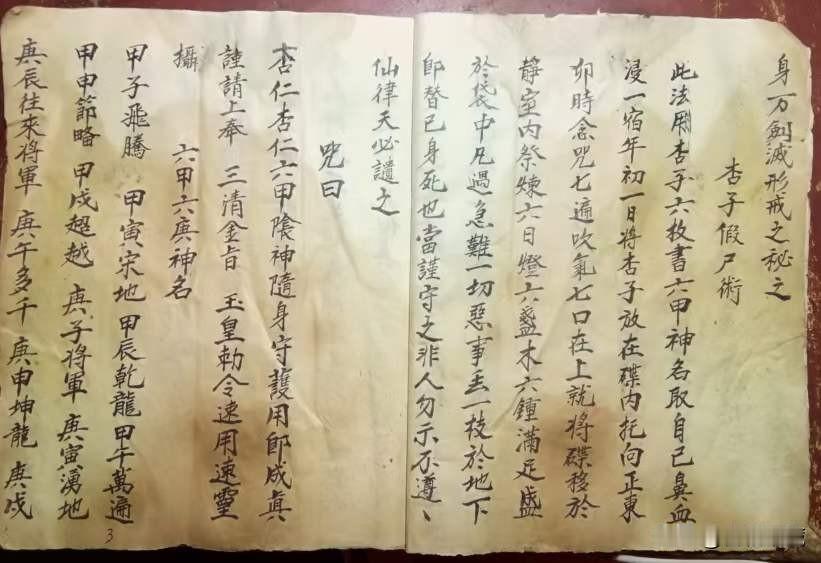 身万劍滅形戒之秘之
杏子假尸術
此法用杏子六枚書六甲神名取自己鼻血
浸一宿年初一日將杏子放在碟內托向正東
卯時念咒七遍吹氣七口在上就將碟移於
靜室內祭煉六日燈六盞木六鍾滿足盛
於袋中凡遇急難一切惡事丟一枝於地下
即替己身死也當謹守之非人勿示不遵、
仙律天必譴之
咒曰
杏仁杏仁六甲陰神隨身守護用即成真
謹請上奉 三清金旨 玉皇勅令速用速靈
攝 六甲六庚神名
甲子飛騰 甲寅宗地 甲辰乾龍 甲午萬遍
甲申節略 甲戌超越 庚子將軍 庚寅湧地
庚辰往來將軍 庚午多千 庚申坤龍 庚戌
3